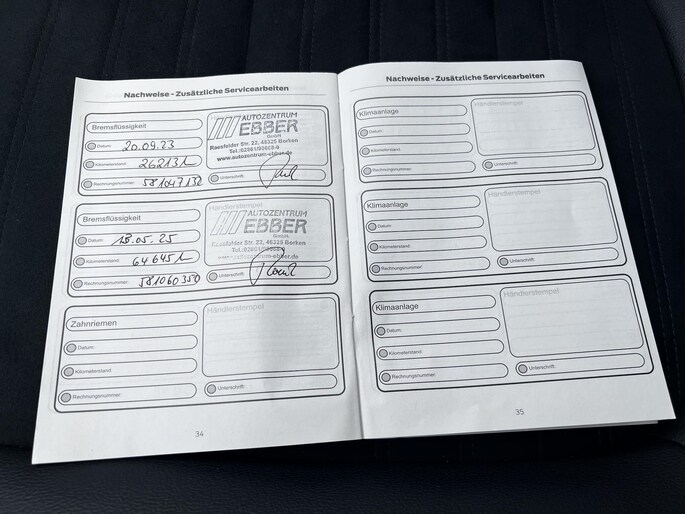 Nachweise - Zusätzliche Servicearbeiten
Bremsflüssigkeit
Datum: 20.09.23
Kilometerstand: 26213 km
Rechnungsnummer: 581047132
AUTOZENTRUM
EBBER
GmbH
Raesfelder Str. 22, 46325 Borken
www.autozentrum-ebber.de
Unterschrift:
Bremsflüssigkeit
Datum: 13.05.25
Kilometerstand: 64645 km
Rechnungsnummer: 581060350
Händlerstempel
AUTOZENTRUM
EBBER
GmbH
Raesfelder Str. 22, 46325 Borken
www.autozentrum-ebber.de
Unterschrift:
Zahnriemen
Datum:
Kilometerstand:
Rechnungsnummer:
Händlerstempel
Unterschrift:
34
Nachweise - Zusätzliche Servicearbeiten
Klimaanlage
Datum:
Kilometerstand:
Rechnungsnummer:
Händlerstempel
Unterschrift:
Klimaanlage
Datum:
Kilometerstand:
Rechnungsnummer:
Händlerstempel
Unterschrift:
Klimaanlage
Datum:
Kilometerstand:
Rechnungsnummer:
Händlerstempel
Unterschrift:
35